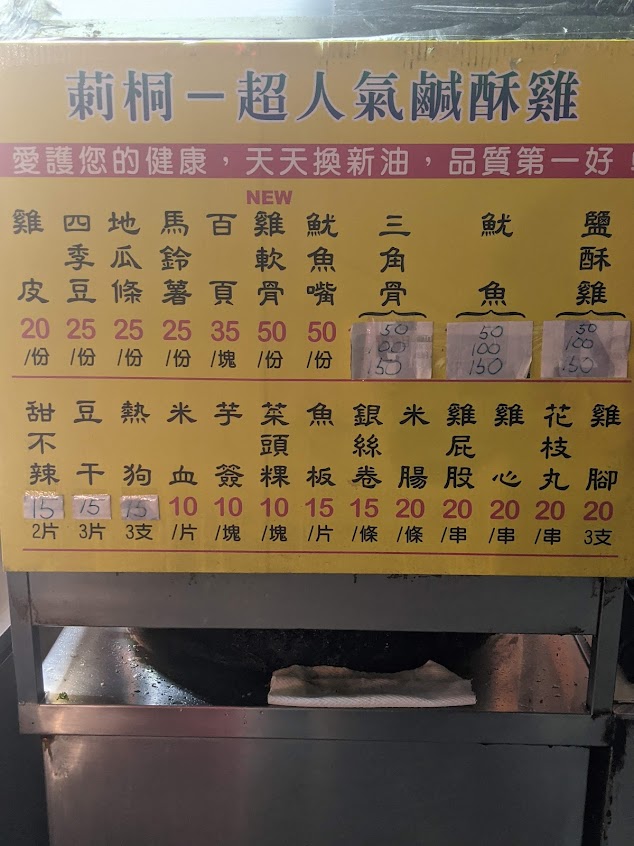 莿桐－超人氣鹹酥雞
愛護您的健康，天天換新油，品質第一好！
NEW
雞皮 20 /份
四季豆 25 /份
地瓜條 25 /份
馬鈴薯 25 /份
百頁 35 /塊
雞軟骨 50 /份
魷魚嘴 50 /份
三角骨 50 100 150
魷魚 50 100 150
鹽酥雞 50 100 150
甜不辣 15 2片
豆干 15 3片
熱狗 15 3支
米血 10 /片
芋簽 10 /塊
菜頭粿 10 /塊
魚板 15 /片
銀絲卷 15 /條
米腸 20 /條
雞屁股 20 /串
雞心 20 /串
花枝丸 20 /串
雞腳 20 3支